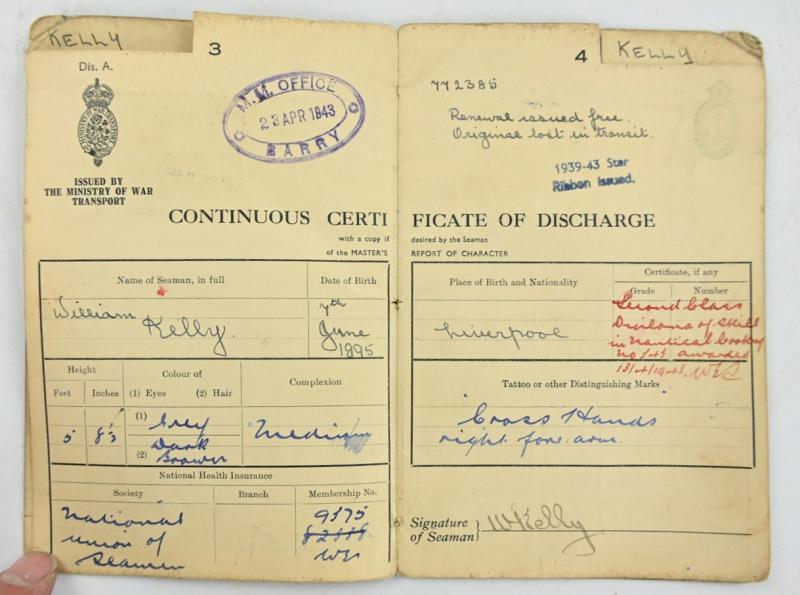 KELLY
3
Dis. A.
MINISTRY OF WAR TRANSPORT
M. M. OFFICE
23 APR 1943
BARRY
ISSUED BY
THE MINISTRY OF WAR
TRANSPORT
CONTINUOUS CERTI
with a copy if
of the MASTER'S
Name of Seaman, in full
Date of Birth
William
Kelly.
7th
June
1895
Height
Colour of
Complexion
Feet
Inches
(1) Eyes
(2) Hair
5
(1)
Grey
(2)
Dark
Brown
Medium
National Health Insurance
Society
Branch
Membership No.
National
Union of
Seamen
9375
4
KELLY
772385
Renewal issued free.
Original lost in transit.
1939-43 Star
Ribbon Issued.
FICATE OF DISCHARGE
desired by the Seaman
REPORT OF CHARACTER
Place of Birth and Nationality
Certificate, if any
Grade
Number
Liverpool
Second Class
Diploma of Skill
in Nautical Cookery
awarded
Tattoo or other Distinguishing Marks
'Cross Hands'
right fore arm.
Signature
of Seaman
W Kelly